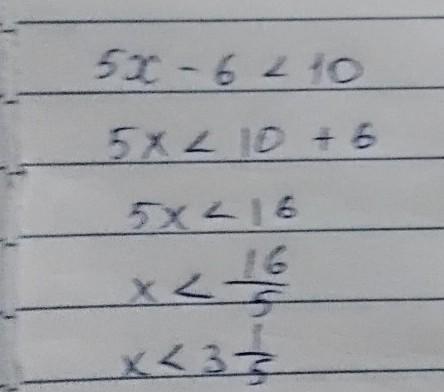 5x - 6 < 10
5x < 10 + 6
5x < 16
x < 16/5
x < 3 1/5